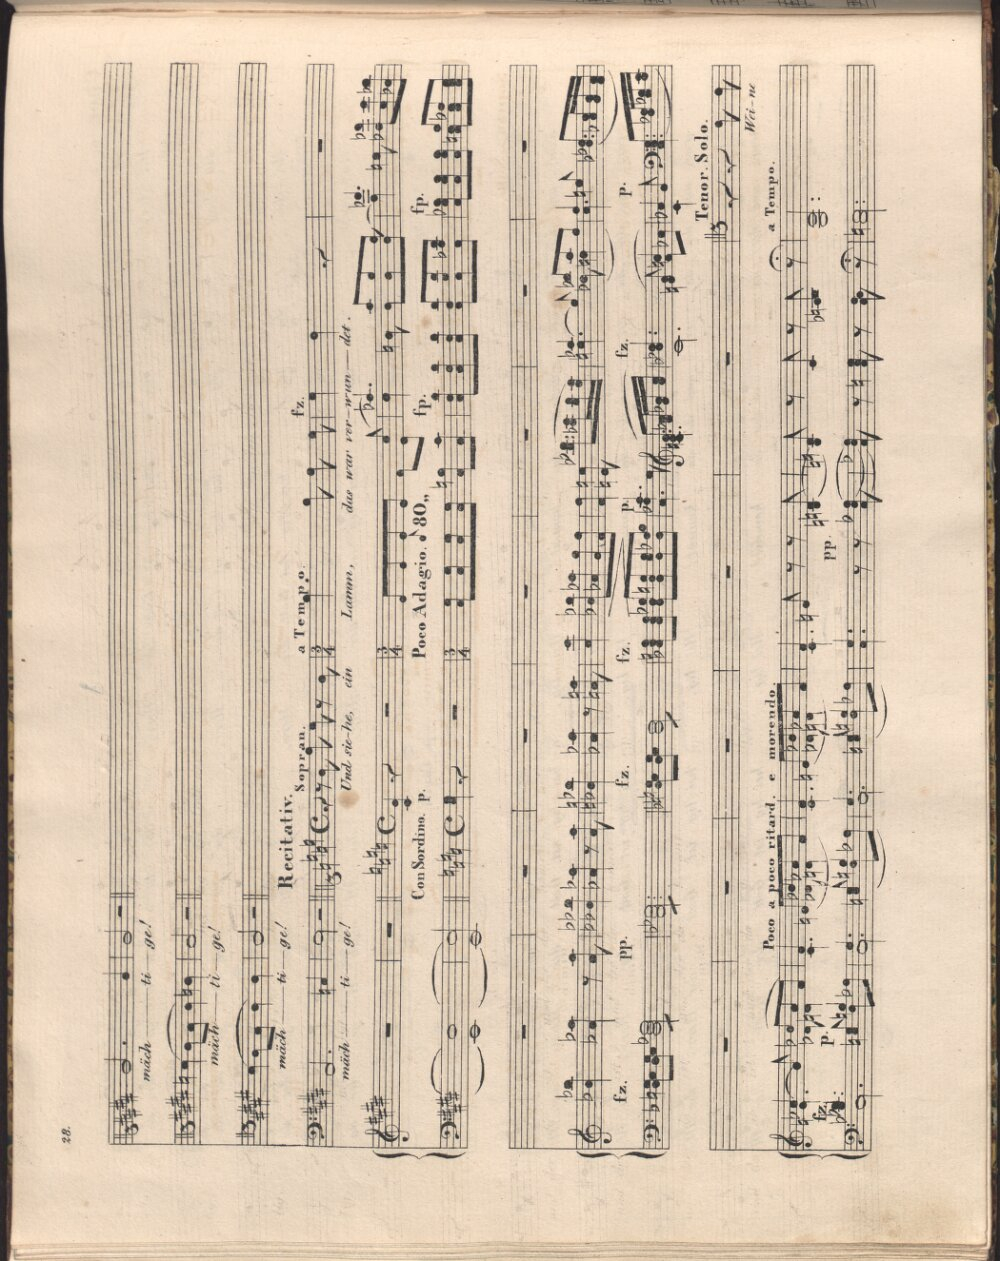 28.
mäch — ti — ge!
mäch — ti — ge!
mäch — ti — ge!
Recitativ.
Sopran. a Tempo. fz.
mäch — ti — ge! Und sie-he, ein Lamm, das war ver-wun — det.
Con Sordino. p. Poco Adagio. 80„ fp. fp.
fz. pp. fz. fz. p. fz. p.
Tenor Solo.
Wei-ne
Poco a poco ritard. e morendo. a Tempo.
fz. p. pp.